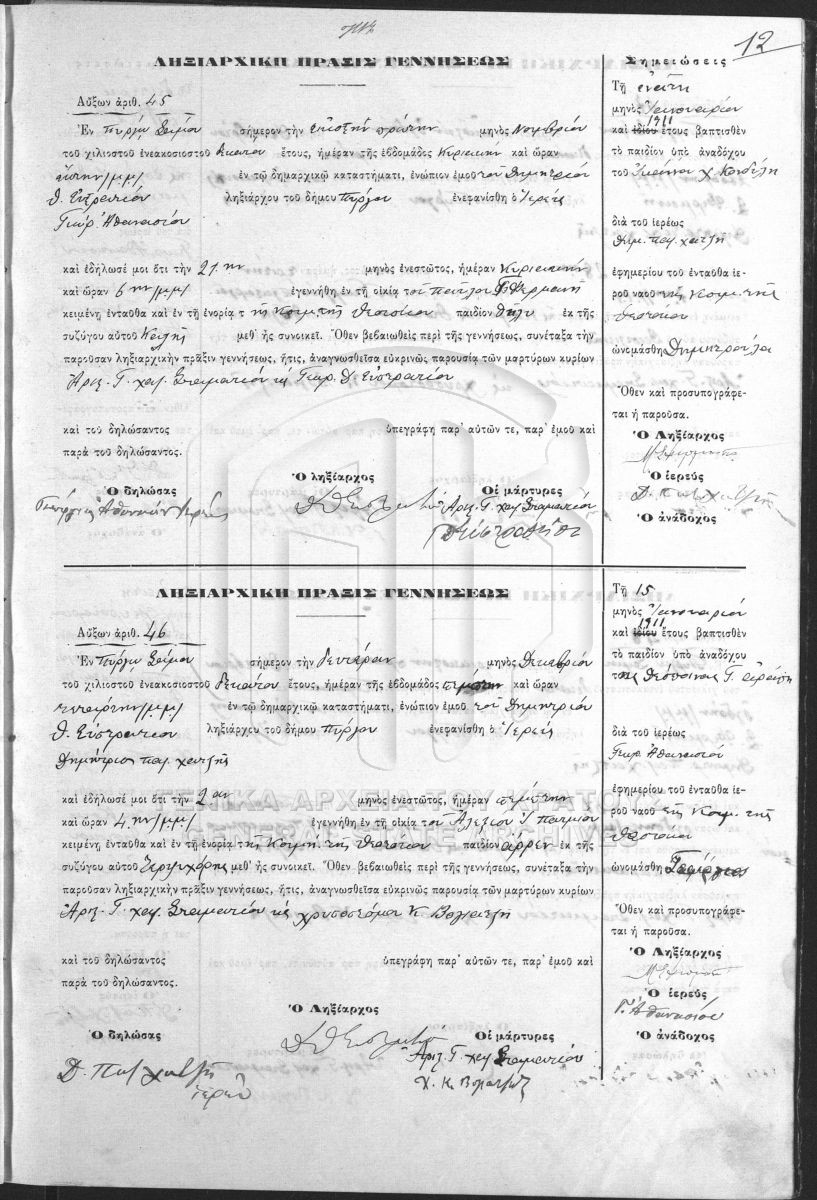 12
ΛΗΞΙΑΡΧΙΚΗ ΠΡΑΞΙΣ ΓΕΝΝΗΣΕΩΣ
Αὔξων ἀριθ. 45
Ἐν Πύργῳ Σάμου σήμερον τὴν εἰκοστήν πρώτην μηνὸς Νοεμβρίου
τοῦ χιλιοστοῦ ἐνεακοσιοστοῦ δεκάτου ἔτους, ἡμέραν τῆς ἑβδομάδος Κυριακήν καὶ ὥραν
/μμ/ ἐν τῷ δημαρχικῷ καταστήματι, ἐνώπιον ἐμοῦ τοῦ Δημητρίου
Θ. Εὐστρατίου ληξιάρχου τοῦ δήμου Πύργου ἐνεφανίσθη ὁ Ἱερεύς
Γεώρ. Ἀθανασίου
καὶ ἐδήλωσέ μοι ὅτι τὴν 21ην μηνὸς ἐνεστῶτος, ἡμέραν Κυριακήν
καὶ ὥραν 6ην /μμ/ ἐγεννήθη ἐν τῇ οἰκίᾳ τοῦ
κειμένῃ ἐνταῦθα καὶ ἐν τῇ ἐνορίᾳ τῆς Κοιμ. τῆς Θεοτόκου παιδίον θῆλυ ἐκ τῆς
συζύγου αὐτοῦ Καλῆς μεθ᾽ ἧς συνοικεῖ. Ὅθεν βεβαιωθεὶς περὶ τῆς γεννήσεως, συνέταξα τὴν
παροῦσαν ληξιαρχικὴν πρᾶξιν γεννήσεως, ἥτις, ἀναγνωσθεῖσα εὐκρινῶς παρουσίᾳ τῶν μαρτύρων κυρίων
Ἀριστ. Γ. χατ. Σταματίου κ Γεωρ. Δ. Εὐστρατίου
καὶ τοῦ δηλώσαντος ὑπεγράφη παρ᾽ αὐτῶν τε, παρ᾽ ἐμοῦ καὶ
παρὰ τοῦ δηλώσαντος.
Ὁ δηλώσας Ὁ ληξίαρχος Οἱ μάρτυρες
Γεώργιος Ἀθανασίου Ἱερεύς Δ Θ Εὐστρατίου Ἀριστ. Γ. χατ. Σταματίου
Σημειώσεις
Τῇ ἐνάτῃ
μηνὸς Ἰανουαρίου
1911
καὶ ἰδίου ἔτους βαπτισθὲν
τὸ παιδίον ὑπὸ ἀναδόχου
τοῦ
διὰ τοῦ ἱερέως
Δημ. παπ. χατζῆ
ἐφημερίου τοῦ ἐνταῦθα ἱε-
ροῦ ναοῦ τῆς Κοιμ. τῆς
Θεοτόκου
ὠνομάσθη Δημητρούλα
Ὅθεν καὶ προσυπογράφε-
ται ἡ παροῦσα.
Ὁ Ληξίαρχος
Ὁ ἱερεύς
Δ. παπ χατζῆς
Ὁ ἀνάδοχος
ΛΗΞΙΑΡΧΙΚΗ ΠΡΑΞΙΣ ΓΕΝΝΗΣΕΩΣ
Αὔξων ἀριθ. 46
Ἐν Πύργῳ Σάμου σήμερον τὴν δευτέραν μηνὸς Δεκεμβρίου
τοῦ χιλιοστοῦ ἐνεακοσιοστοῦ δεκάτου ἔτους, ἡμέραν τῆς ἑβδομάδος πέμπτην καὶ ὥραν
τετάρτην /μμ/ ἐν τῷ δημαρχικῷ καταστήματι, ἐνώπιον ἐμοῦ τοῦ Δημητρίου
Θ. Εὐστρατίου ληξιάρχου τοῦ δήμου Πύργου ἐνεφανίσθη ὁ Ἱερεύς
Δημήτριος παπ. χατζῆς
καὶ ἐδήλωσέ μοι ὅτι τὴν 2αν μηνὸς ἐνεστῶτος, ἡμέραν πέμπτην
καὶ ὥραν 4ην /μμ/ ἐγεννήθη ἐν τῇ οἰκίᾳ τοῦ Ἀλεξίου
κειμένῃ ἐνταῦθα καὶ ἐν τῇ ἐνορίᾳ τῆς Κοιμ. τῆς Θεοτόκου παιδίον ἄρρεν ἐκ τῆς
συζύγου αὐτοῦ μεθ᾽ ἧς συνοικεῖ. Ὅθεν βεβαιωθεὶς περὶ τῆς γεννήσεως, συνέταξα τὴν
παροῦσαν ληξιαρχικὴν πρᾶξιν γεννήσεως, ἥτις, ἀναγνωσθεῖσα εὐκρινῶς παρουσίᾳ τῶν μαρτύρων κυρίων
Ἀριστ. Γ. χατ. Σταματίου κ Χρυσοστόμου Κ.
καὶ τοῦ δηλώσαντος ὑπεγράφη παρ᾽ αὐτῶν τε, παρ᾽ ἐμοῦ καὶ
παρὰ τοῦ δηλώσαντος.
Ὁ Ληξίαρχος
Ὁ δηλώσας Οἱ μάρτυρες
Δ Θ Εὐστρατίου Ἀριστ. Γ. χατ. Σταματίου
Δ. παπ χατζῆς
ἱερεύς
Τῇ 15
μηνὸς Ἰανουαρίου
1911
καὶ ἰδίου ἔτους βαπτισθὲν
τὸ παιδίον ὑπὸ ἀναδόχου
διὰ τοῦ ἱερέως
Γεωρ. Ἀθανασίου
ἐφημερίου τοῦ ἐνταῦθα ἱε-
ροῦ ναοῦ τῆς Κοιμ. τῆς
Θεοτόκου
ὠνομάσθη Γεώργιος
Ὅθεν καὶ προσυπογράφε-
ται ἡ παροῦσα.
Ὁ Ληξίαρχος
Ὁ ἱερεύς
Γ. Ἀθανασίου
Ὁ ἀνάδοχος
ΓΕΝΙΚΑ ΑΡΧΕΙΑ ΤΟΥ ΚΡΑΤΟΥΣ
GENERAL STATE ARCHIVES